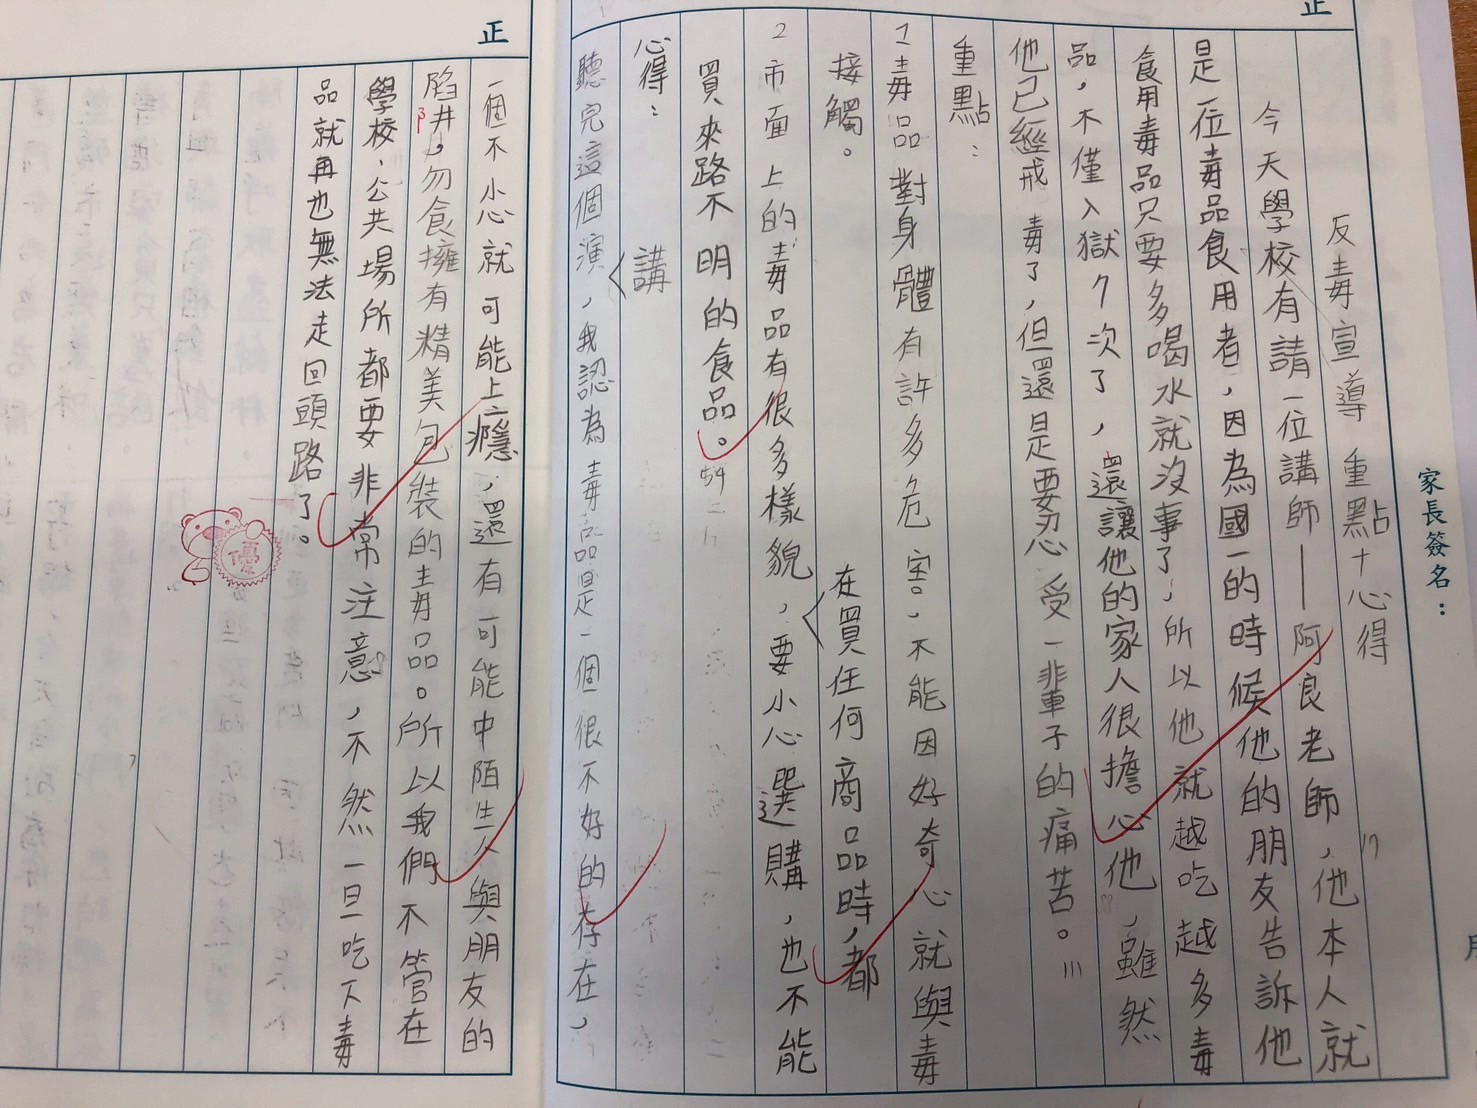 正
家長簽名：
反毒宣導 重點+心得
今天學校有請一位講師——阿良老師，他本人就
是一位毒品食用者，因為國一的時候他的朋友告訴他
食用毒品只要多喝水就沒事了，所以他就越吃越多毒
品，不僅入獄7次了，還讓他的家人很擔心他，雖然
他已經戒毒了，但還是要忍受一輩子的痛苦。
重點：
1毒品對身體有許多危害，不能因好奇心就與毒
接觸。
在買任何商品時，都
2市面上的毒品有很多樣貌，要小心選購，也不能
買來路不明的食品。
心得：
講
聽完這個演，我認為毒品是一個很不好的存在，
正
一個不小心就可能上癮，還有可能中陌生人與朋友的
陷井，勿食擁有精美包裝的毒品。所以我們不管在
學校、公共場所都要非常注意，不然一旦吃下毒
品就再也無法走回頭路了。
優